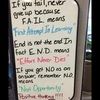 If you fail, never
give up because
F.A.I.L. means
First Attempt In Learning
End is not the end. In
fact E.N.D. means
"Effort Never Dies"
If you get NO as an
answer, remember N.O.
means
"Next Opportunity"
Positive thinking